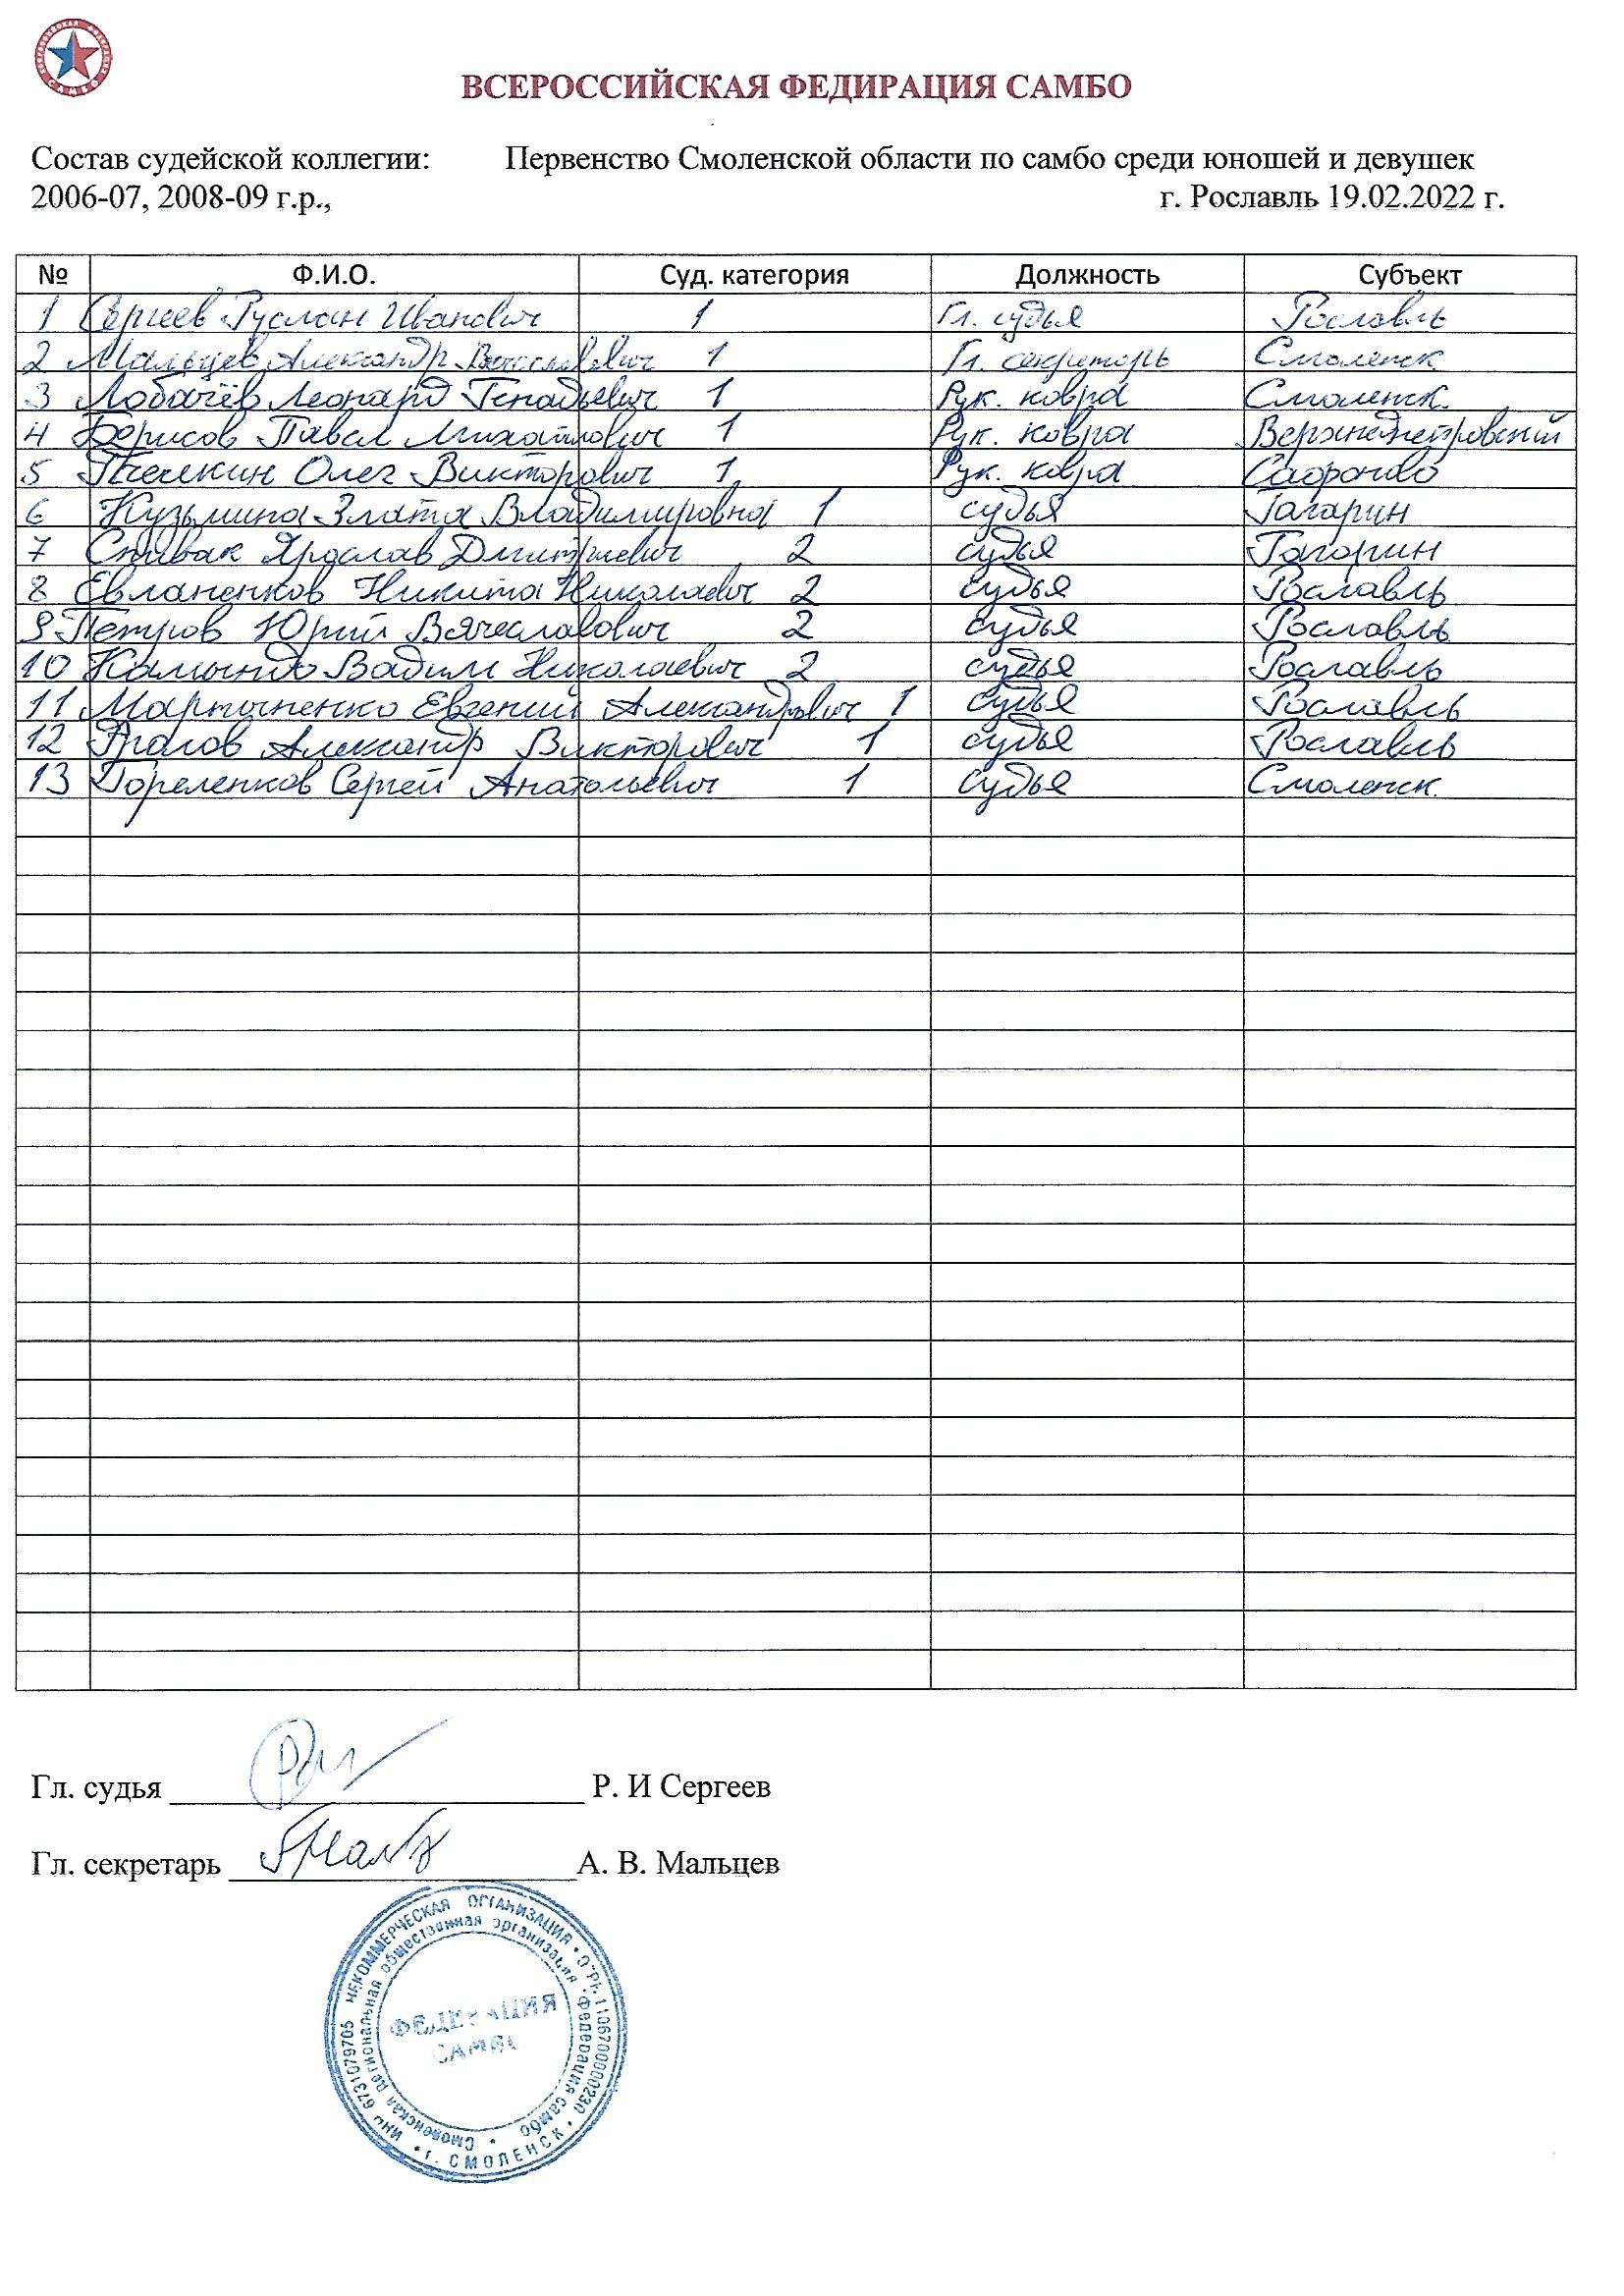 ВСЕРОССИЙСКАЯ ФЕДИРАЦИЯ САМБО
Состав судейской коллегии: Первенство Смоленской области по самбо среди юношей и девушек
2006-07, 2008-09 г.р., г. Рославль 19.02.2022 г.
№ Ф.И.О. Суд. категория Должность Субъект
1 Сергеев Руслан Иванович 1 Гл. судья Рославль
2 Мальцев Александр Вячеславович 1 Гл. секретарь Смоленск
3 Лобачёв Леонард Генадьевич 1 Рук. ковра Смоленск.
4 Борисов Павел Михайлович 1 Рук. ковра Верхнеднепровский
5 Олег Викторович 1 Рук. ковра Сафоново
6 Кузьмина Злата Владимировна 1 судья Гагарин
7 Спивак Ярослав Дмитриевич 2 судья Гагарин
8 Евланенков Никита Николаевич 2 судья Рославль
9 Петров Юрий Вячеславович 2 судья Рославль
10 Вадим Николаевич 2 судья Рославль
11 Мартыненко Евгений Александрович 1 судья Рославль
12 Александр Викторович 1 судья Рославль
13 Гореленков Сергей Анатольевич 1 судья Смоленск.
Гл. судья Р. И Сергеев
Гл. секретарь А. В. Мальцев
НЕКОММЕРЧЕСКАЯ ОРГАНИЗАЦИЯ • ОГРН 1106700000230 • г. СМОЛЕНСК • ИНН 6731079705
Смоленская региональная общественная организация Федерация самбо
ФЕДЕРАЦИЯ
САМБО